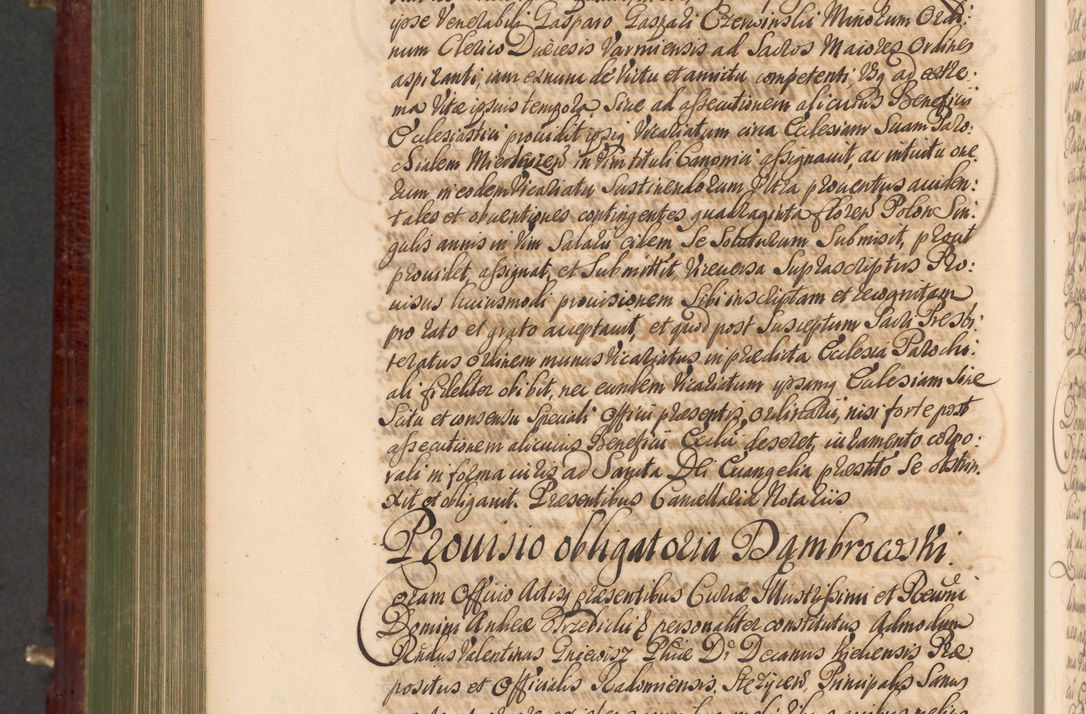 ipse Venerabili Gasparo Gaspari Czerwinski Minorum Ordi-
num Clerico Diœcesis Varmiensis ad Sacros Maiores Ordines
aspiranti, cum exnunc de Victu et amictu competenti Usq ad extre-
ma Vitæ ipsius tempora, Sive ad assecutionem alicuius Beneficii
Ecclesiastici providit ipsiq Vicariatum circa Ecclesiam Suam Paro-
chialem in Vim tituli Canonici assignavit, ac intuitu one-
rum in eodem Vicariatu Sustinendorum Ultra proventus acciden-
tales et obventiones contingentes quadraginta floren Polon Sin-
gulis annis in Vim Salarii eidem Se Soluturum Submisit, prout
providet, assignat, et Submittit. Viceversa Suprascriptus Pro-
visus huiusmodi provisionem Sibi inscriptam et recognitam
pro rato et grato acceptavit, et quod post Susceptum Sacri Presbi-
teratus ordinem munus Vicariatus in prædicta Ecclesia Parochi-
ali fideliter obibit, nec eundem Vicariatum ipsamq Ecclesiam Sine
Scitu et consensu Speciali Officii præsentis, ordinarii, nisi forte post
assecutionem alicuius Beneficii Ecclici deseret, iuramento corpo-
rali in forma iuris ad Sancta Dei Evangelia præstito Se obstrin-
xit et obligavit. Præsentibus Cancellariæ Notariis
Provisio obligatoria Dąmbrowski.
Coram Officio Actisq præsentibus Curiæ Illustrissimi et Reverendissimi
Domini Andreæ Trzebicki & personaliter constitutus Admodum
Rndus Valentinus Phiæ Dr Decanus Kielcensis Præ
positus et Officialis Radomiensis, Principalis Sanus